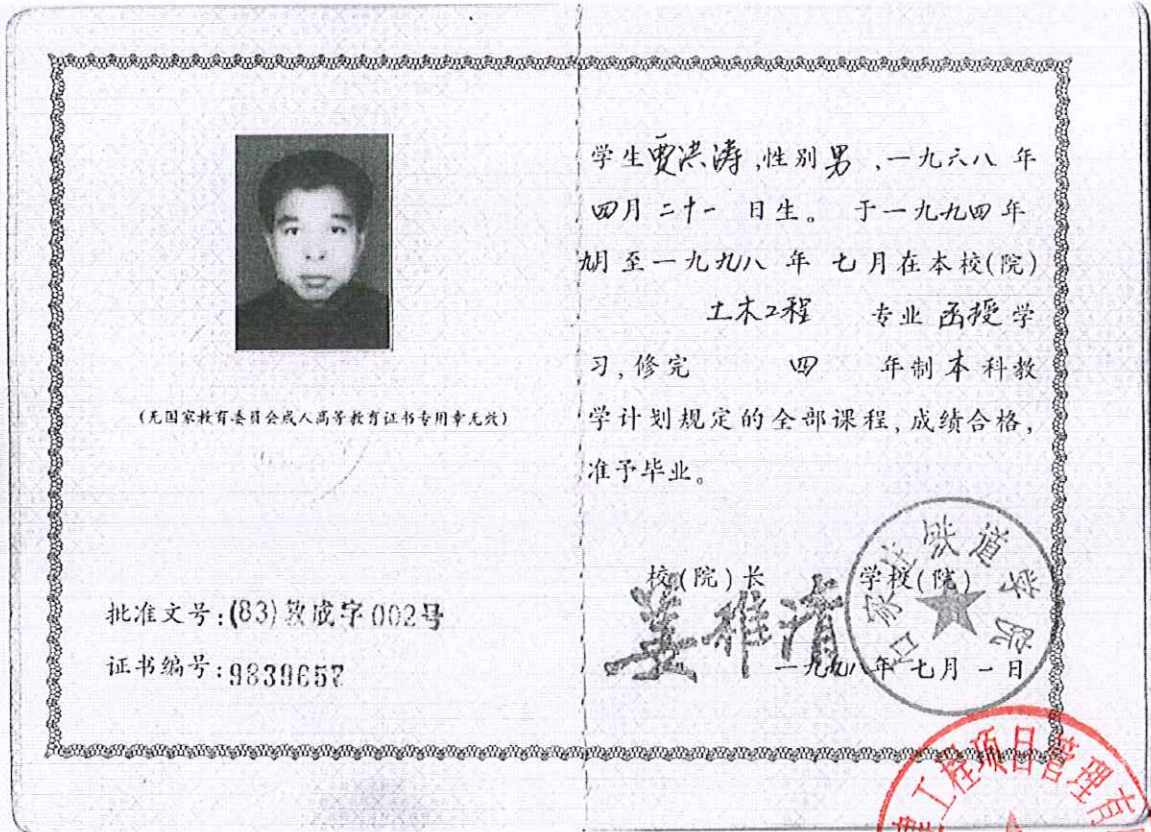 (无国家教育委员会成人高等教育证书专用章无效)
批准文号:(83)教成字002号
证书编号:9839657
学生贾洪涛,性别男,一九六八年
四月二十一日生。于一九九四年
九月至一九九八年七月在本校(院)
土木工程 专业函授学
习,修完 四 年制本科教
学计划规定的全部课程,成绩合格,
准予毕业。
校(院)长 学校(院)
姜稚清
石家庄铁道学院
一九九八年七月一日
工程项目管理有